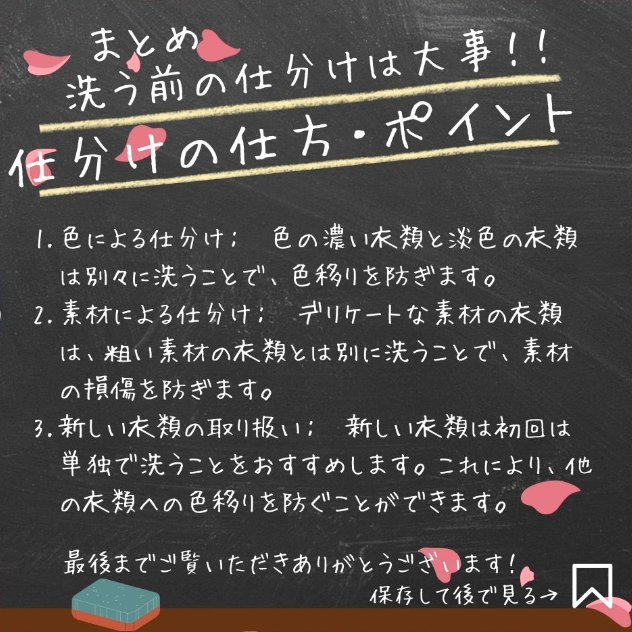 まとめ
洗う前の仕分けは大事!!
仕分けの仕方・ポイント
1. 色による仕分け; 色の濃い衣類と淡色の衣類
は別々に洗うことで、色移りを防ぎます。
2. 素材による仕分け; デリケートな素材の衣類
は、粗い素材の衣類とは別に洗うことで、素材
の損傷を防ぎます。
3. 新しい衣類の取り扱い; 新しい衣類は初回は
単独で洗うことをおすすめします。これにより、他
の衣類への色移りを防ぐことができます。
最後までご覧いただきありがとうございます!
保存して後で見る→